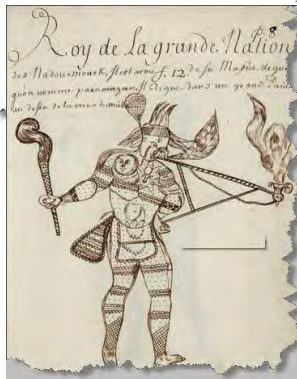 p. 8
Roy de La grande Nation
des Nadouessiouek, il est armé f. 12 de sa Massue de guerre
qu'on nomme pakamagan. Il Regne dans un grand païs